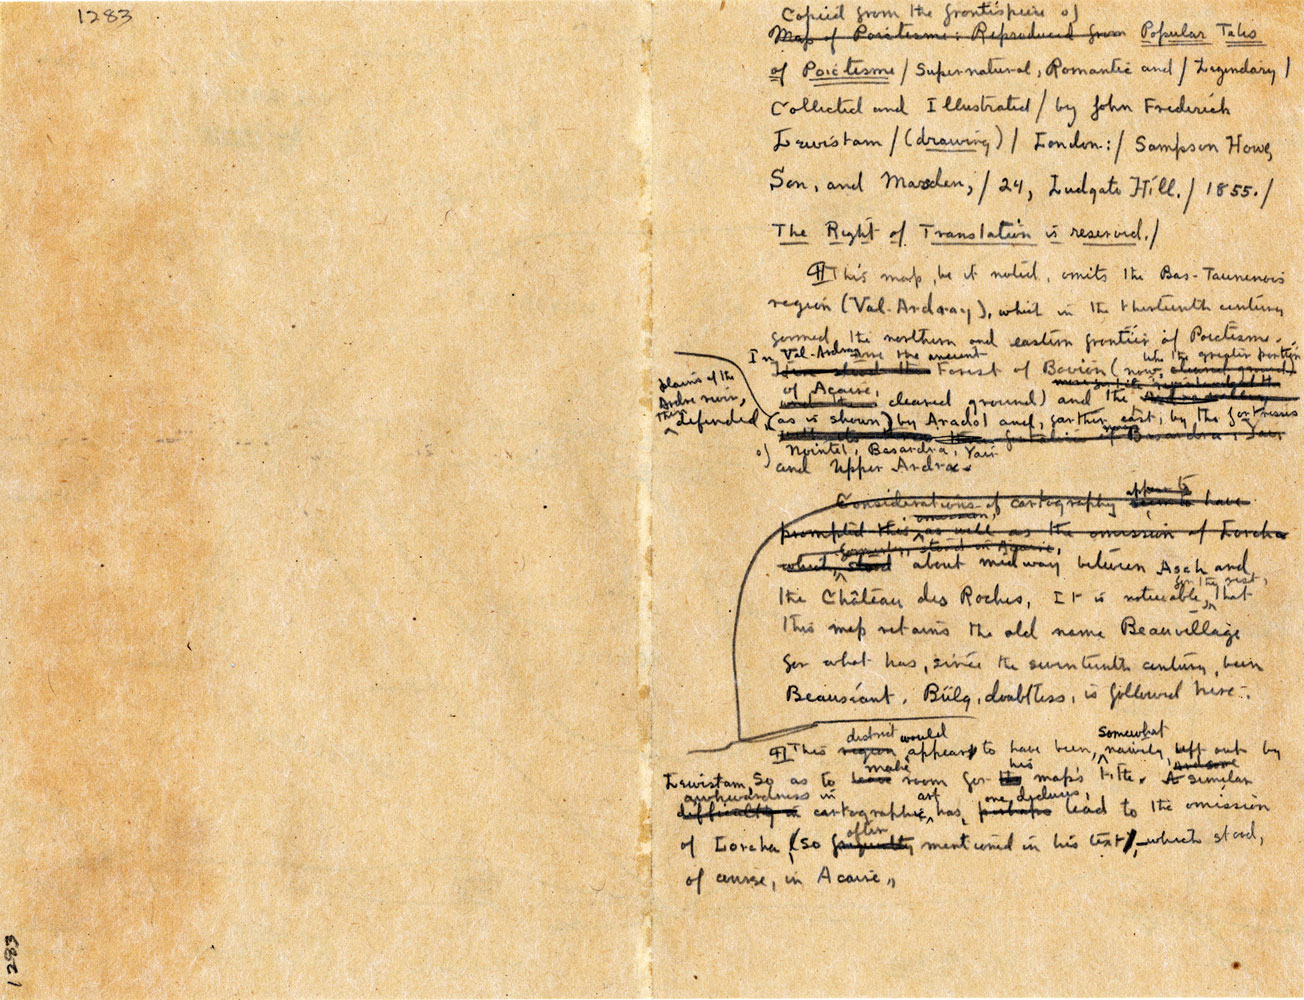 1283
Copied from the frontispiece of
Map of Poictesme: Reproduced from Popular Tales
of Poictesme / Supernatural, Romantic and / Legendary /
Collected and Illustrated / by John Frederick
Lewistam / (drawing) / London: / Sampson Howe,
Son, and Marsden, / 24, Ludgate Hill. / 1855. /
The Right of Translation is reserved. /
¶ This map, be it noted, omits the Bas-Taunenois
region (Val-Ardray), which in the thirteenth century
formed the northern and eastern frontier of Poictesme.
In Val-Ardray were the ancient
Here stood the Forest of Bovion (now, like the greater portion
cleared ground
of Acaire,
and the cleared ground) and the
plains of the
Ardre river,
thus defended (as is shown) by Aradol and, farther east, by the fortresses
of Nointel, Basardra, Yair
and Upper Ardra.
Considerations of cartography appear to
seem to have
prompted this omission, as well as the omission of Lorcha
formerly, stood in Acaire,
which stood about midway between Asch and
the Château des Roches. It is noticeable, for the rest, that
this map retains the old name Beauvillage
for what has, since the seventeenth century, been
Beauséant. Bülg, doubtless, is followed here.
district would somewhat
¶ This region appears to have been, naively, left out by
make his
Lewistam, so as to leave room for the map's title. A similar
awkwardness in art one deduces,
difficulty in cartographic has, perhaps lead to the omission
often
of Lorcha, (so frequently mentioned in his text), which stood,
of course, in Acaire.
1283